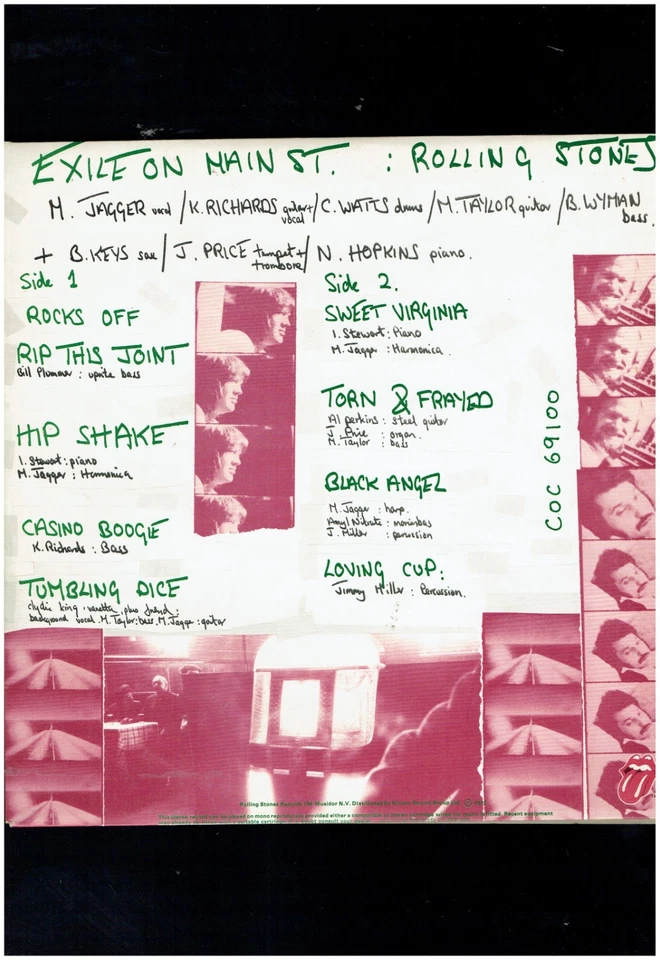 EXILE ON MAIN ST. : ROLLING STONES
M. JAGGER vocal / K. RICHARDS guitar + vocal / C. WATTS drums / M. TAYLOR guitar / B. WYMAN bass.
+ B. KEYS sax / J. PRICE trumpet + trombone / N. HOPKINS piano.
Side 1
ROCKS OFF
RIP THIS JOINT
Bill Plummer : uprite bass
HIP SHAKE
I. Stewart : piano
M. Jagger : Harmonica
CASINO BOOGIE
K. Richards : Bass
TUMBLING DICE
clydie king, vanetta, plus friend :
background vocal. M. Taylor : bass. M. Jagger : guitar
Side 2.
SWEET VIRGINIA
I. Stewart : Piano
M. Jagger : Harmonica.
TORN & FRAYED
Al perkins : steel guitar
J. Price : organ.
M. Taylor : bass
BLACK ANGEL
M. Jagger : harp.
Amyl Nitrate : marimbas
J. Miller : percussion
LOVING CUP :
Jimmy Miller : Percussion.
COC 69100
Rolling Stones Records, TM Musidor N.V. Distributed by
This stereo record can be played on mono reproducers provided either a compatible or stereo cartridge wired for mono is fitted. Recent equipment